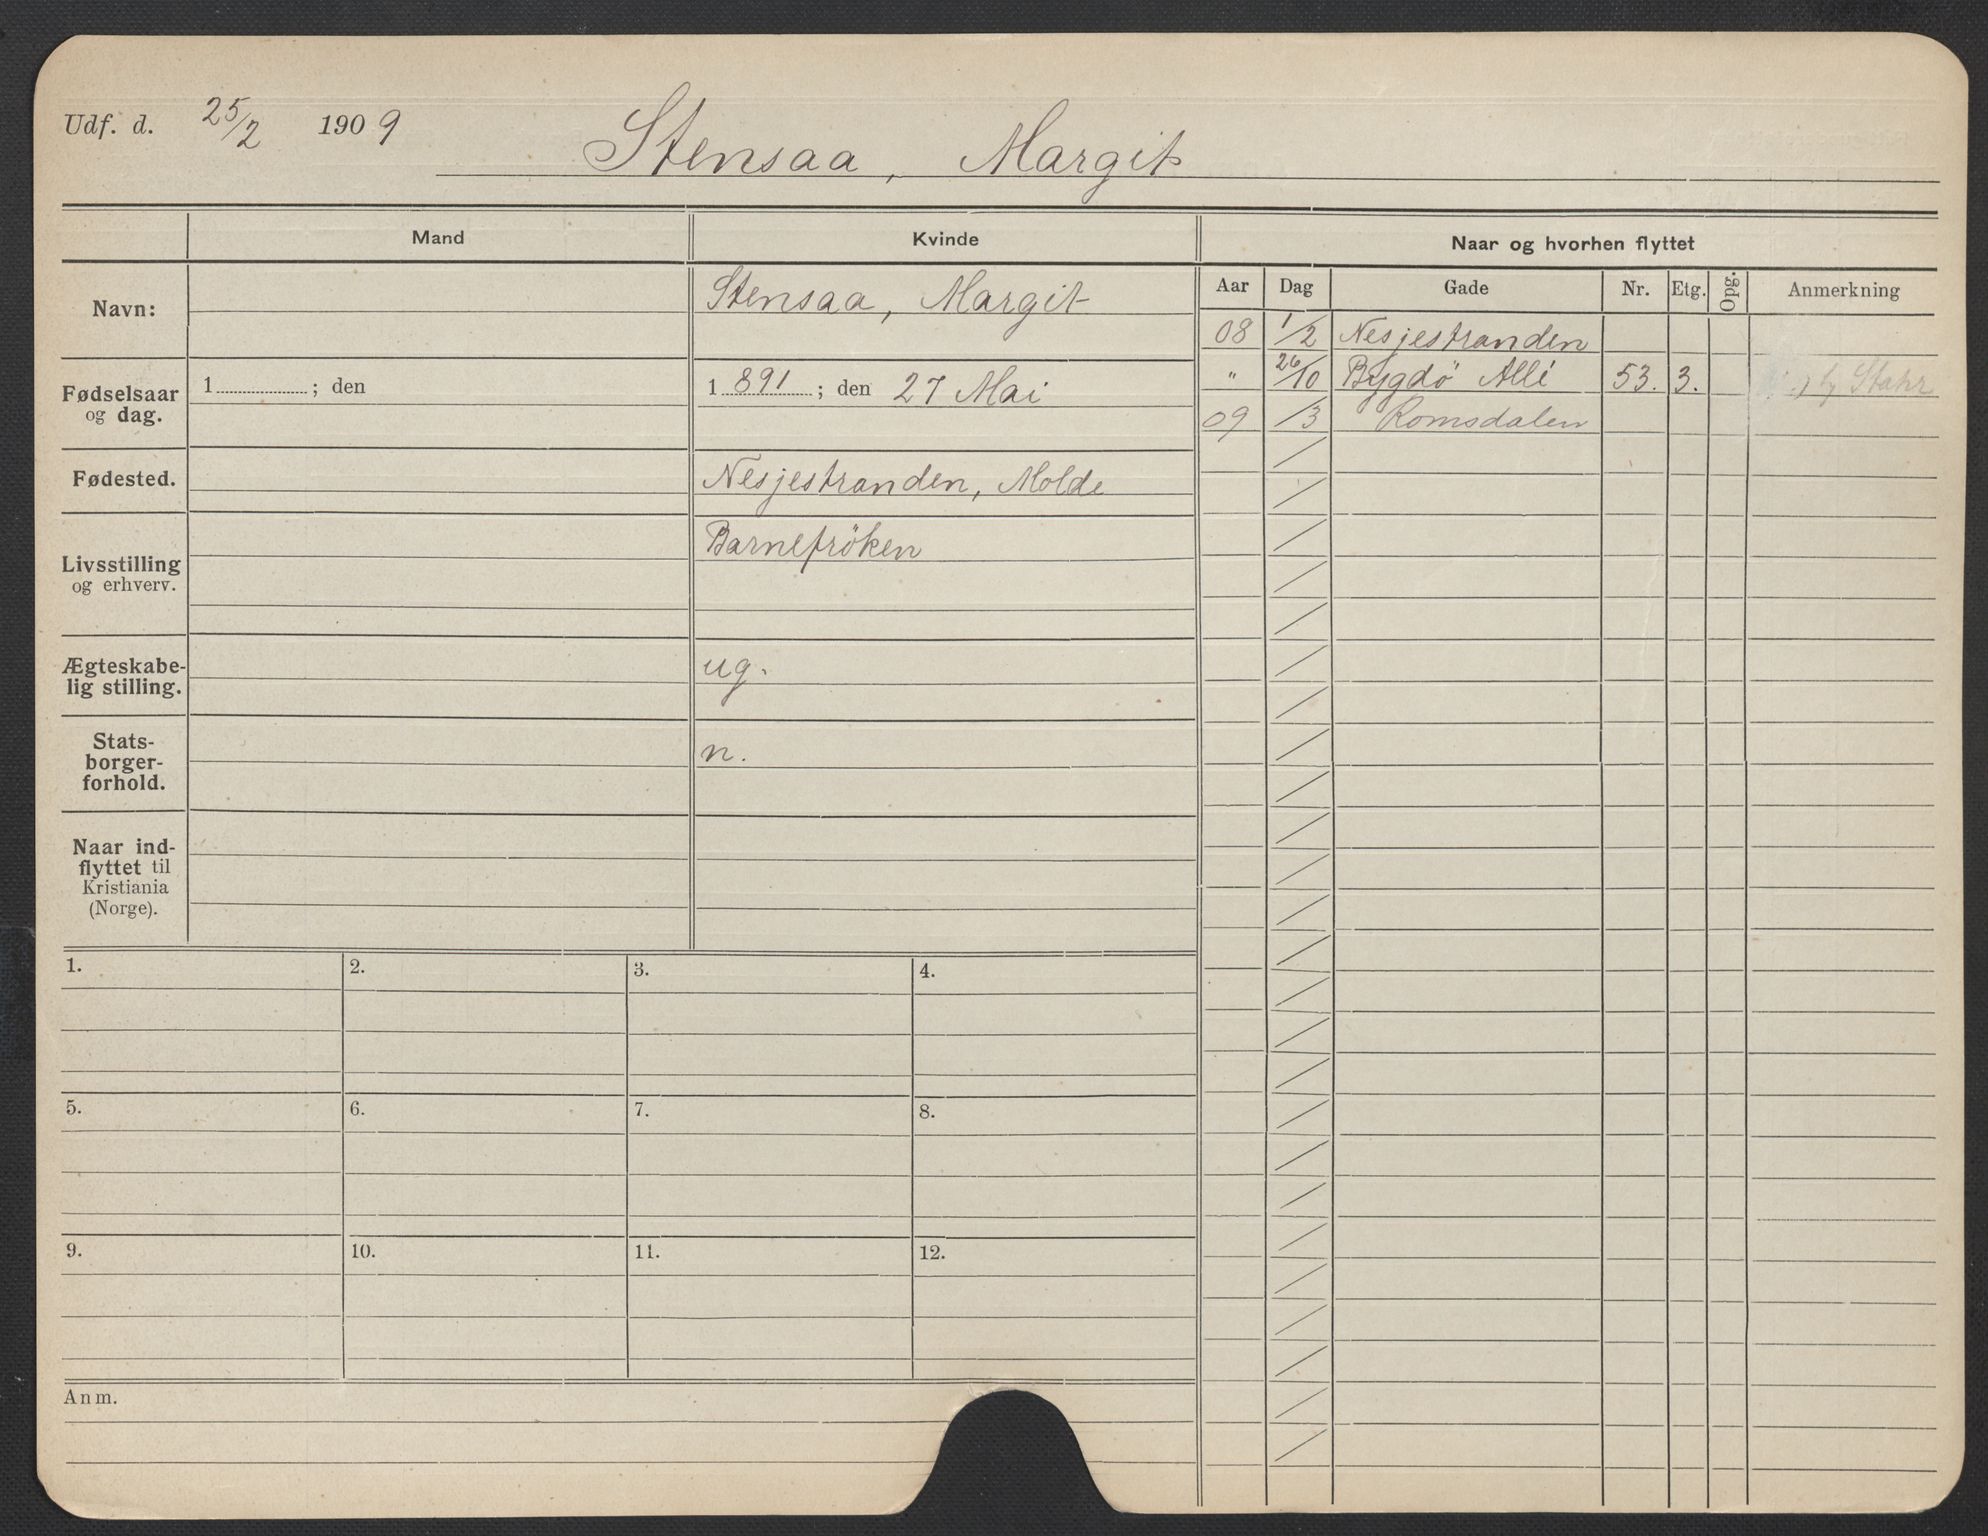 Udf. d. 25/2 1909
Stensaa, Margit
Mand
Kvinde
Naar og hvorhen flyttet
Navn:
Stensaa, Margit
Fødselsaar og dag.
1 ; den
1 891 ; den 27 Mai
Fødested.
Nesjestranden, Molde
Livsstilling og erhverv.
Barnefröken
Ægteskabe-
lig stilling.
ug.
Stats-
borger-
forhold.
n.
Naar ind-
flyttet til
Kristiania
(Norge).
Aar Dag Gade Nr. Etg. Opg. Anmerkning
08 1/2 Nesjestranden
" 26/10 Bygdö Allé 53. 3. Stahr
09 /3 Romsdalen
1. 2. 3. 4.
5. 6. 7. 8.
9. 10. 11. 12.
Anm.